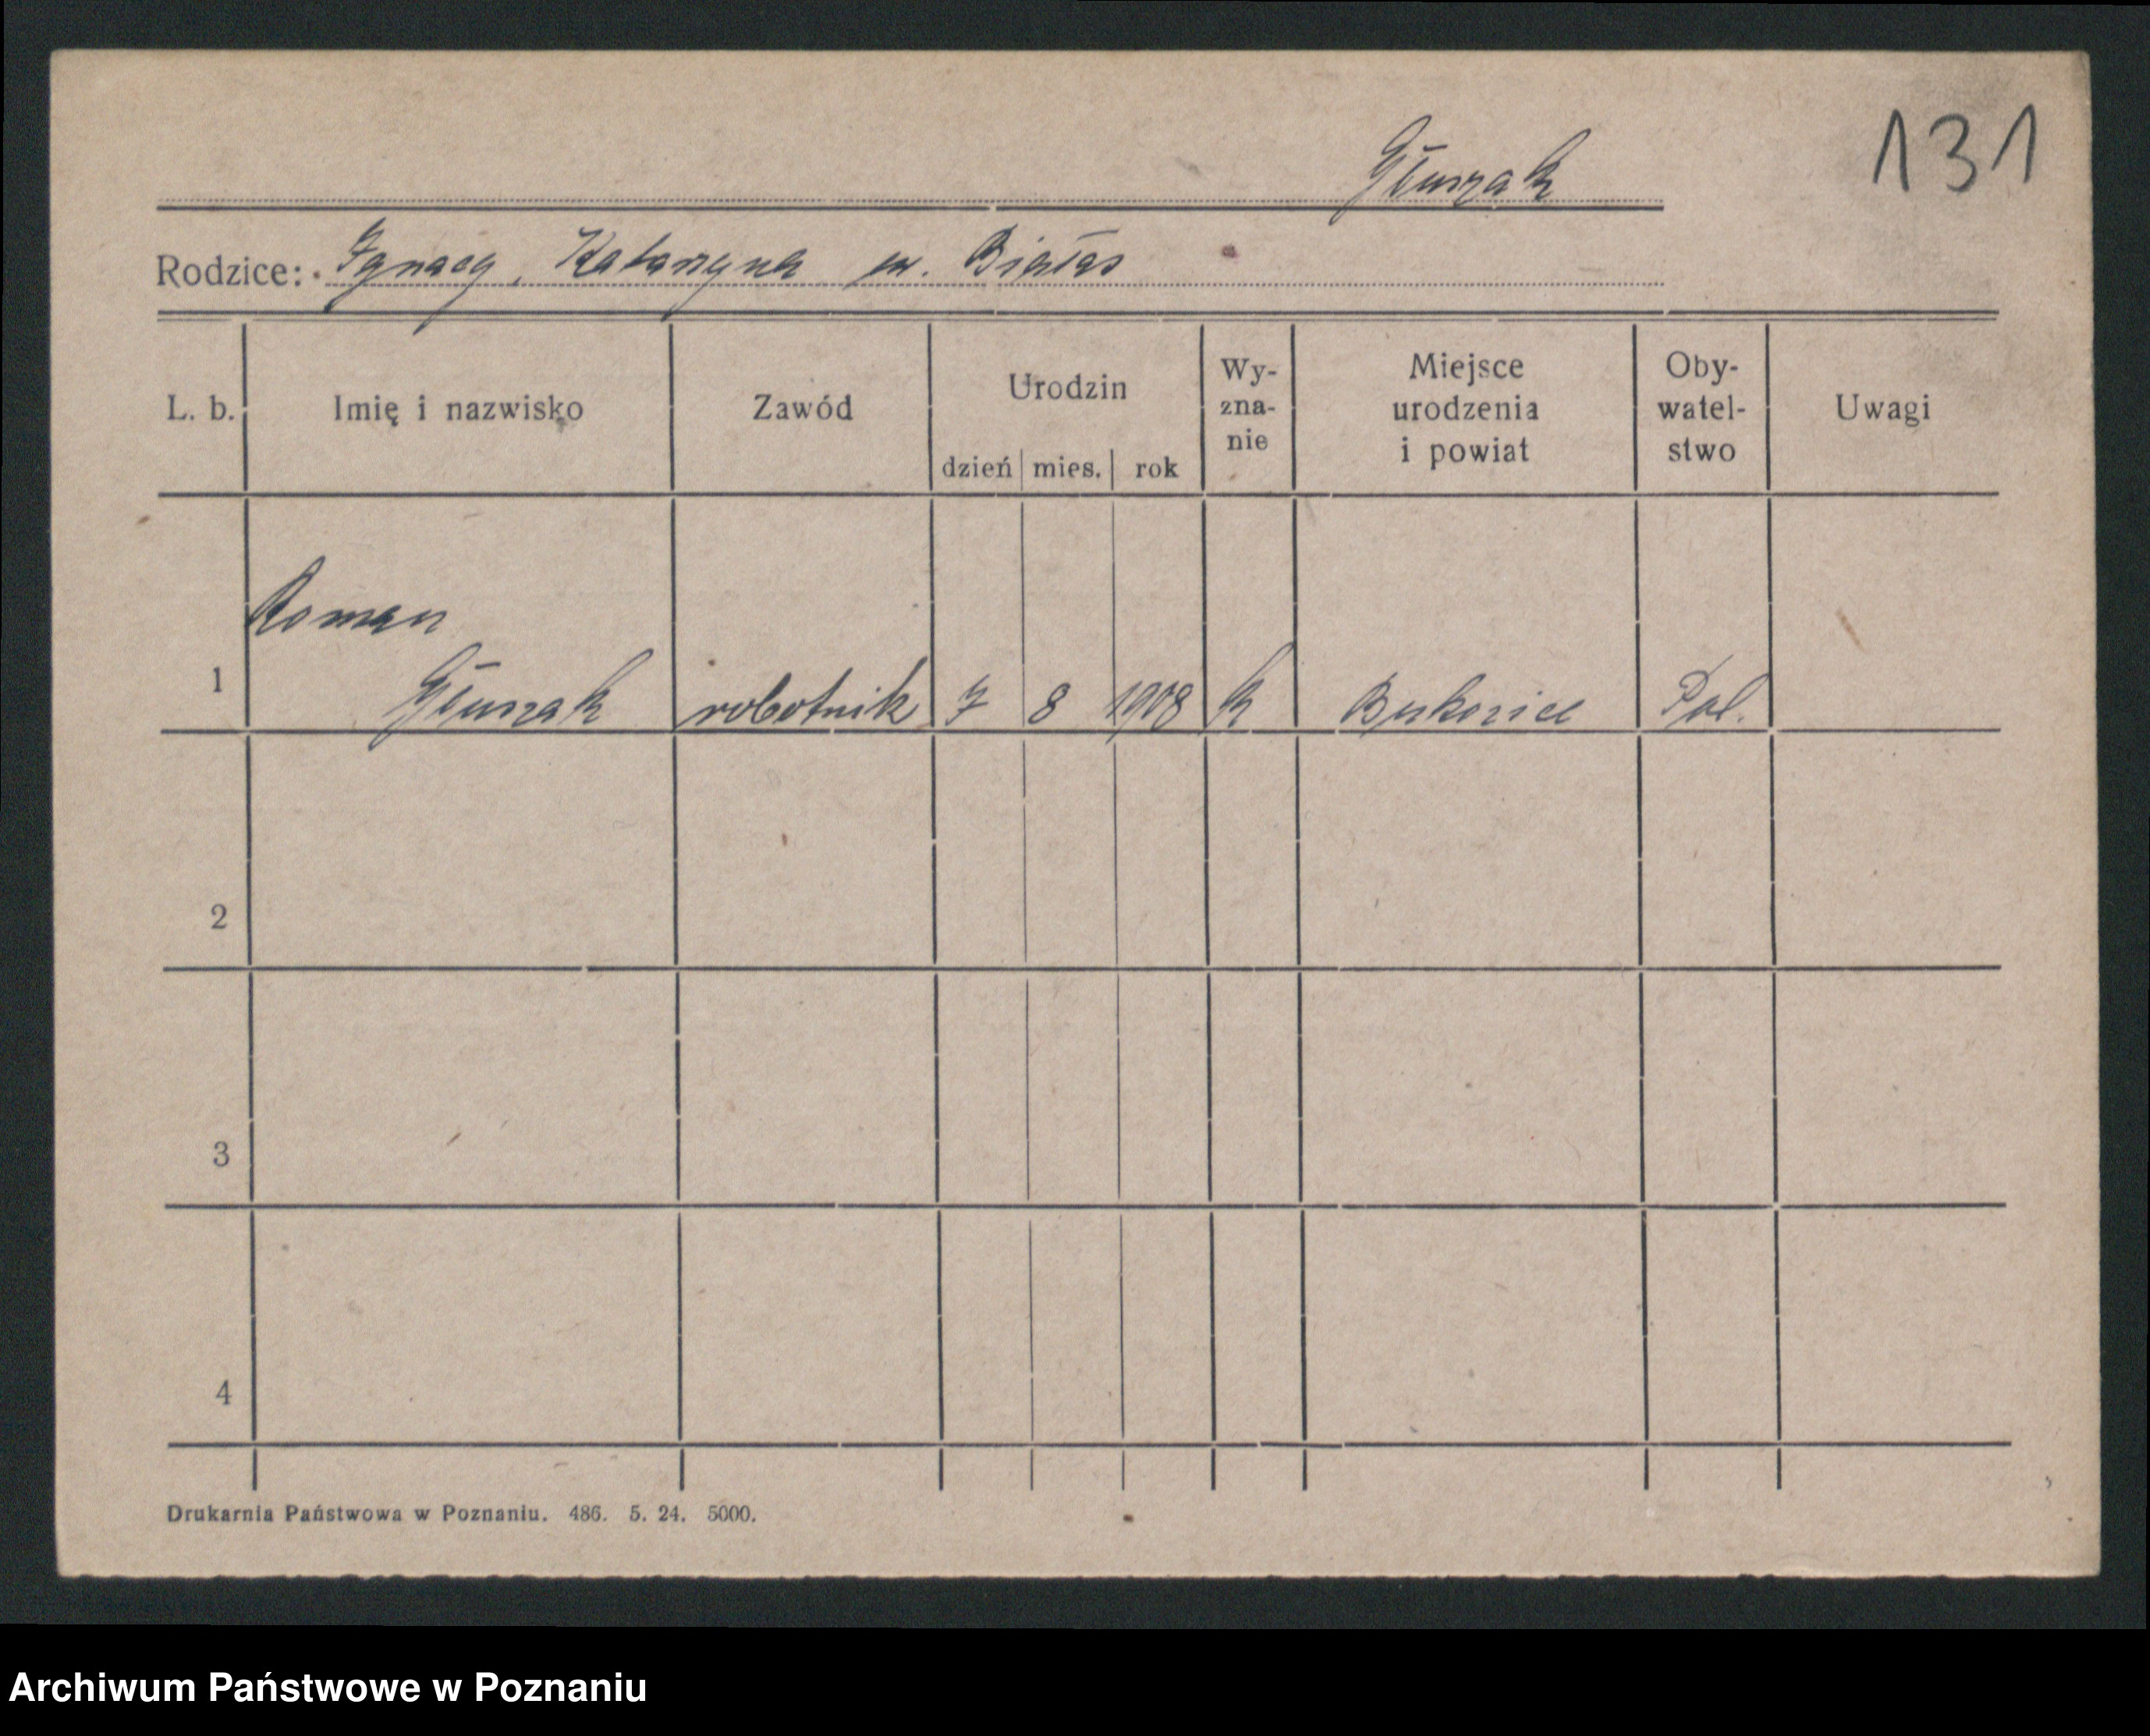 131
Głuszak
Rodzice: Ignacy, Katarzyna ur. Białas
L. b. Imię i nazwisko Zawód Urodzin dzień mies. rok Wy-zna-nie Miejsce urodzenia i powiat Oby-watel-stwo Uwagi
Roman
1 Głuszak robotnik 7 8 1908 k Pol.
2
3
4
Drukarnia Państwowa w Poznaniu. 486. 5. 24. 5000.
Archiwum Państwowe w Poznaniu